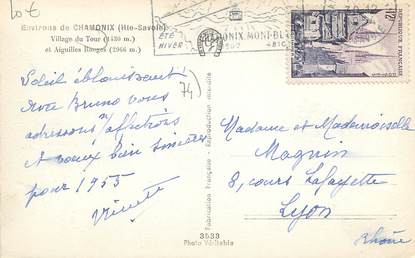 10€
Environs de CHAMONIX (Hte-Savoie)
Village du Tour (1430 m.)
et Aiguilles Rouges (2966 m.)
ÉTÉ
HIVER
CHAMONIX MONT-BLANC
RÉPUBLIQUE FRANÇAISE
12F
74)
Soleil éblouissant!
Avec Bruno vous
adressons n/ affectés
et vœux bien sincères
pour 1955
Madame et Mademoiselle
Magnin
8, cours Lafayette
Lyon
Rhône
Fabrication Française - Reproduction interdite
3533
Photo Véritable